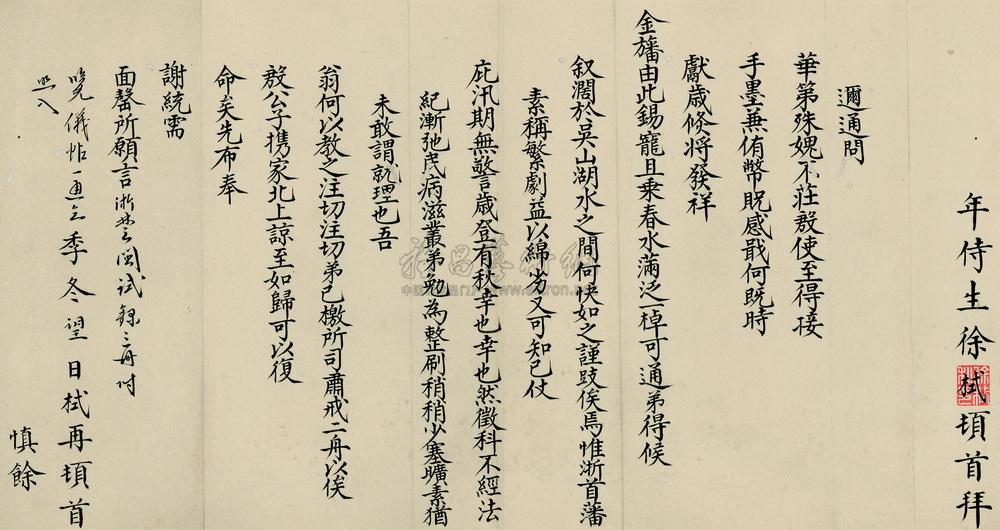 年侍生徐栻頓首拜
邇通問
華第殊媿不莊敎使至得接
手墨兼侑幣貺感戢何旣時
獻歲倏將發祥
金籓由此錫寵且乘春水滿泛一棹可通弟得候
叙濶於吳山湖水之間何快如之謹跂俟焉惟浙首藩
素稱繁劇益以綿劣又可知已仗
庇汛期無警言歲登有秋幸也幸也然徵科不經法
紀漸弛民病滋叢弟勉為整刷稍稍少塞曠素猶
未敢謂就理也吾
翁何以教之注切注切弟已檄所司肅戒二舟以俟
敎公子携家北上諒至如歸可以復
命矣先布奉
謝統需
面罄所願言
季冬望日栻再頓首
慎餘